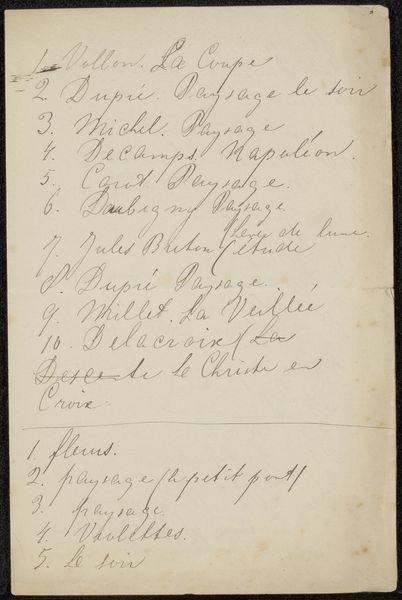 1. Vollon. La Coupe
2. Dupré. Paysage le soir
3. Michel. Paysage
4. Decamps. Napoléon.
5. Corot Paysage.
6. Daubigny Paysage
Lever de lune.
7. Jules Breton (étude
8. Dupré Paysage.
9. Millet. La Veillée
10. Delacroix (La
Descente le Christ en
Croix.
1. fleurs.
2. paysage (le petit pont)
3. paysage.
4. Violettes.
5. Le soir